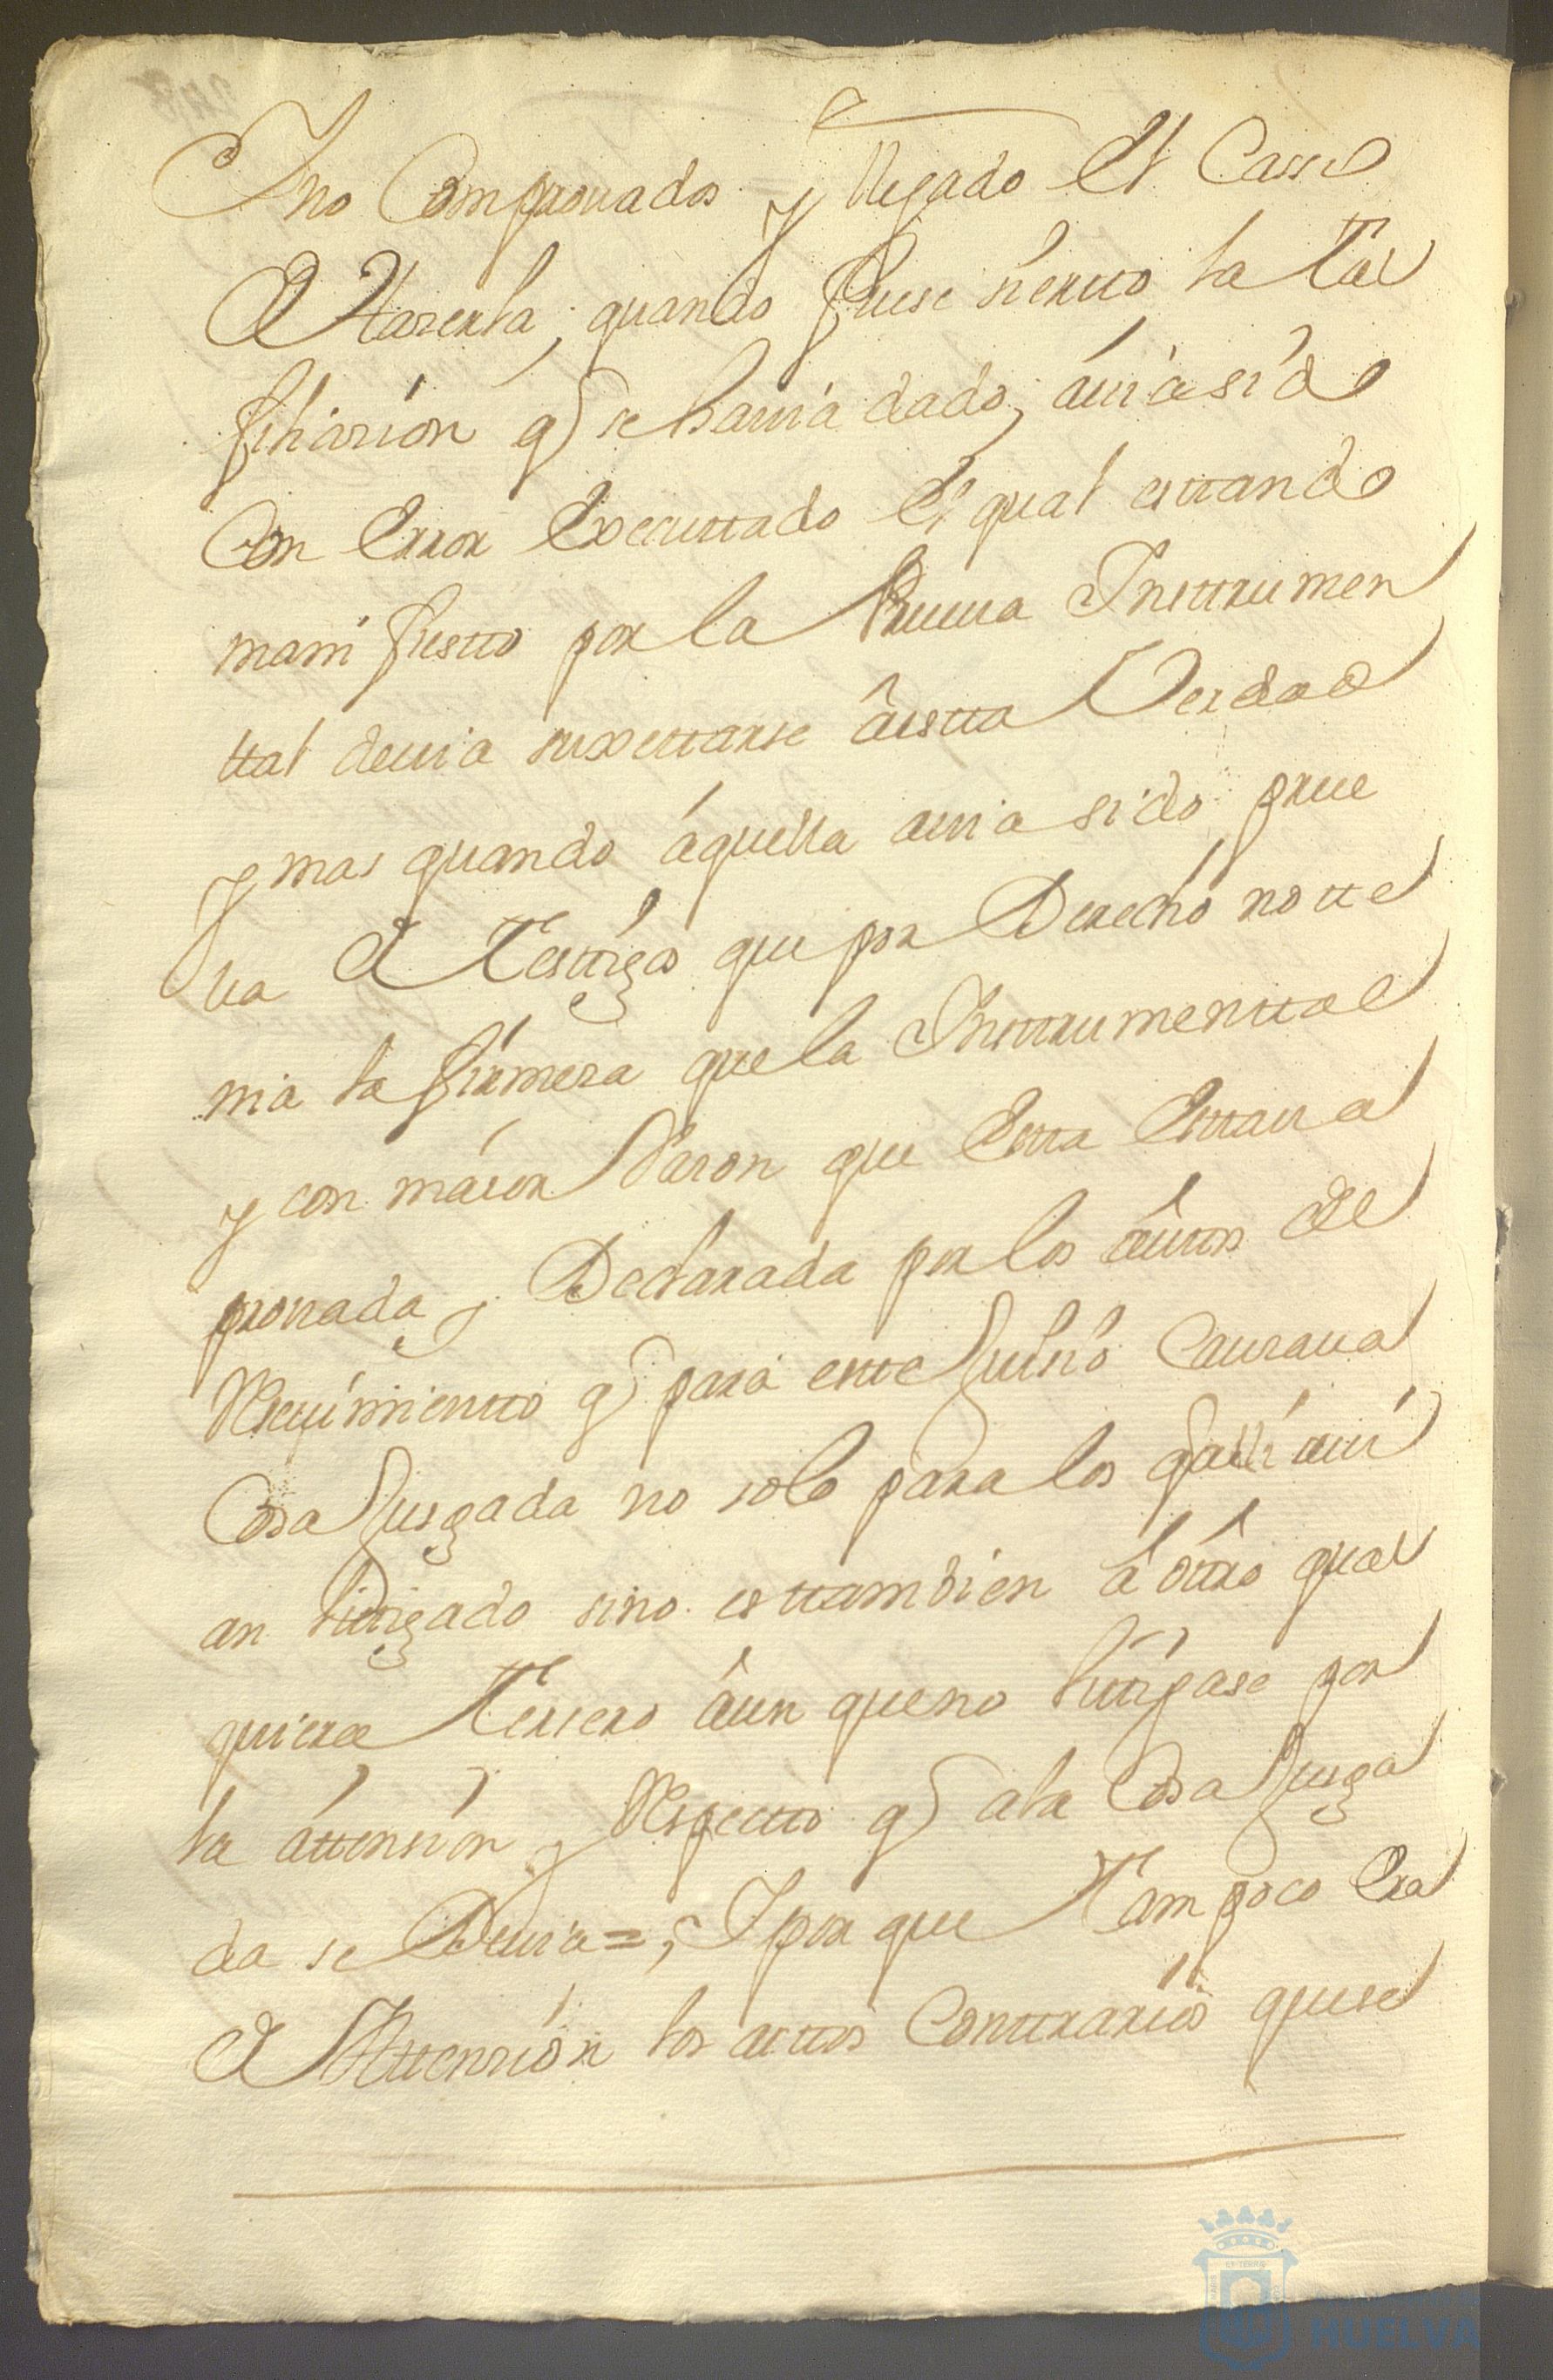 Y no Comprouados y llegado el Casso
de Hazerla, quando fuese sierto la tal
filiasion q se hauia dado, auia sido
Con Error Executtado el qual esttando
manifiestto por la Prueua Insttrumen
ttal deuia suxettarse â estta Verdad
y mas quando áquella auia sido prue
ua de Testtigos que por Derecho no tte
nia la firmeza que la Insttrumenttal
y con maior Razon que Estta Esttaua
prouada, y Declarada por los autos de
Resiuimientto q para estte Juisio Causaua
Cosa Jusgada no solo para los q alli aui
an littigado sino es ttambien â ôttro qual
quiera Tersero âun que no littigase por
la áttension y Respectto q a la Cosa Jusga
da se Deuia =, Y por que Tampoco Era
de Attension los acttos Conttrarios que se
HUELVA